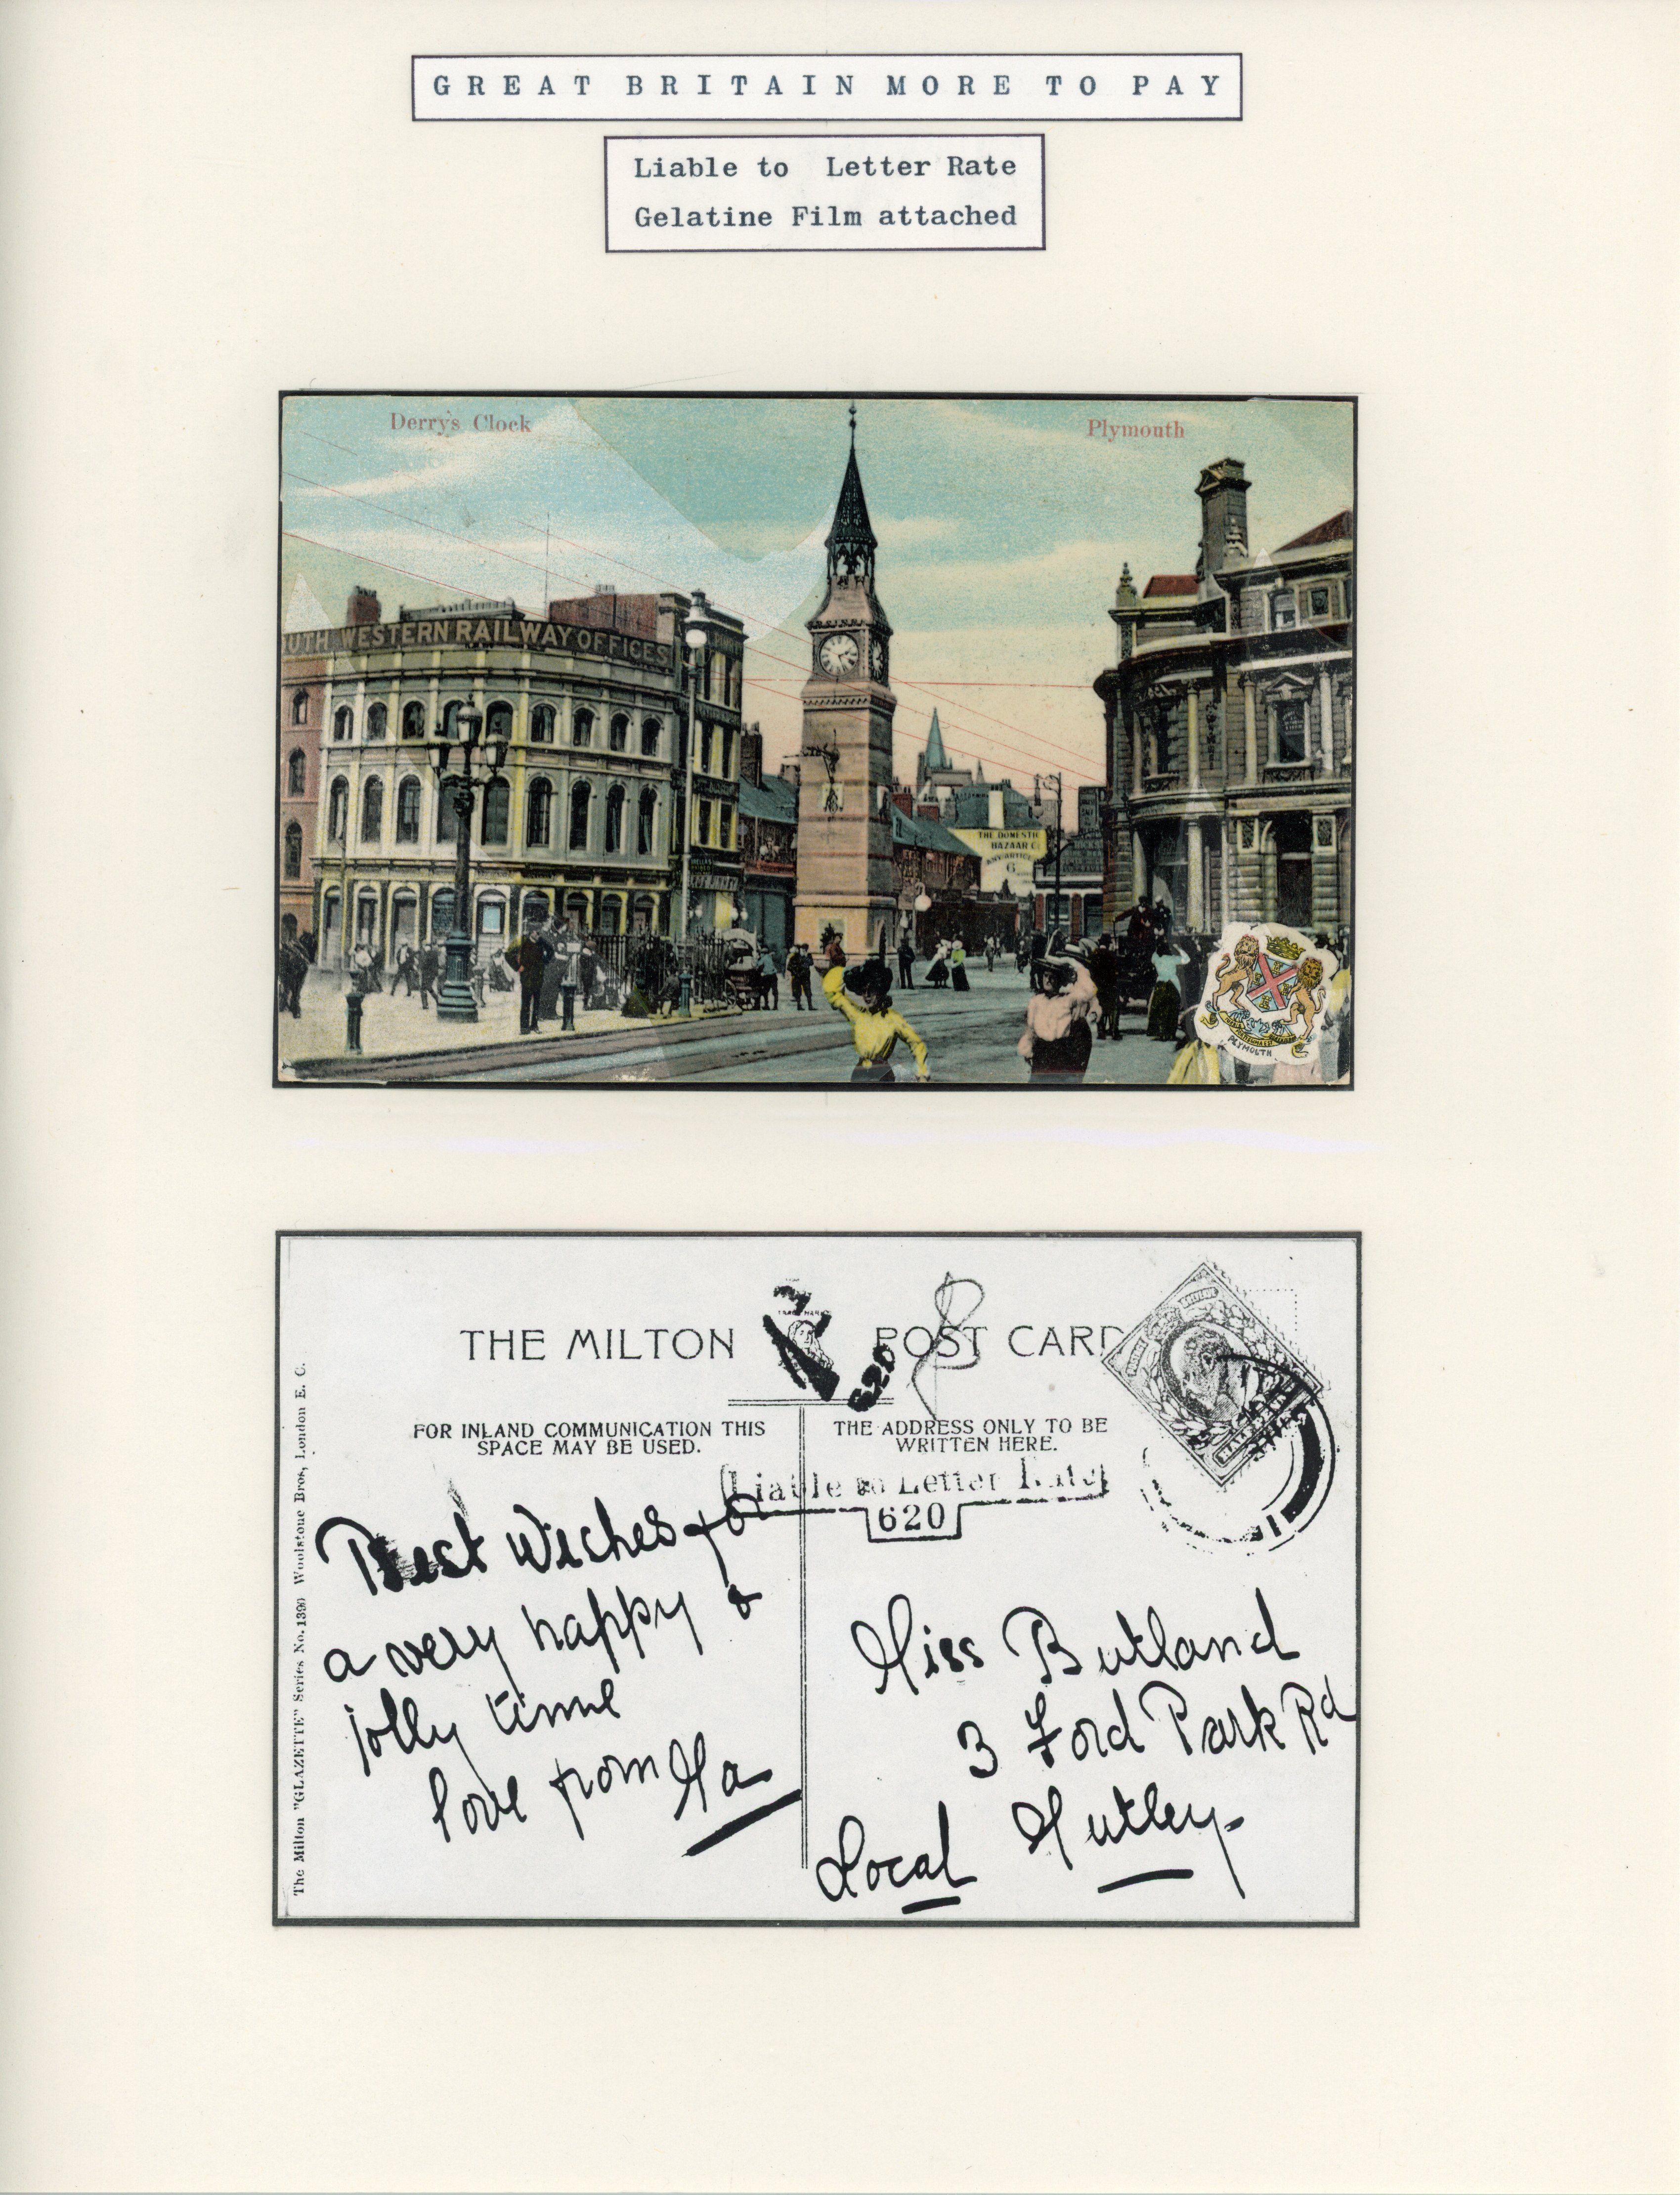 GREAT BRITAIN MORE TO PAY
Liable to Letter Rate
Gelatine Film attached
Derry's Clock
Plymouth
UTH WESTERN RAILWAY OFFICES
THE DOMESTIC
BAZAAR Co
ANY ARTICLE
6
PLYMOUTH
THE MILTON POST CARD
TRADE MARK
620
FOR INLAND COMMUNICATION THIS
SPACE MAY BE USED.
THE ADDRESS ONLY TO BE
WRITTEN HERE.
Liable to Letter Rate
620
Best Wishes for
a very happy &
jolly time
love from Ma
Miss Butland
3 Ford Park Rd
Mutley
Local
The Milton "GLAZETTE" Series No. 1399 Woolstone Bros, London E. C.